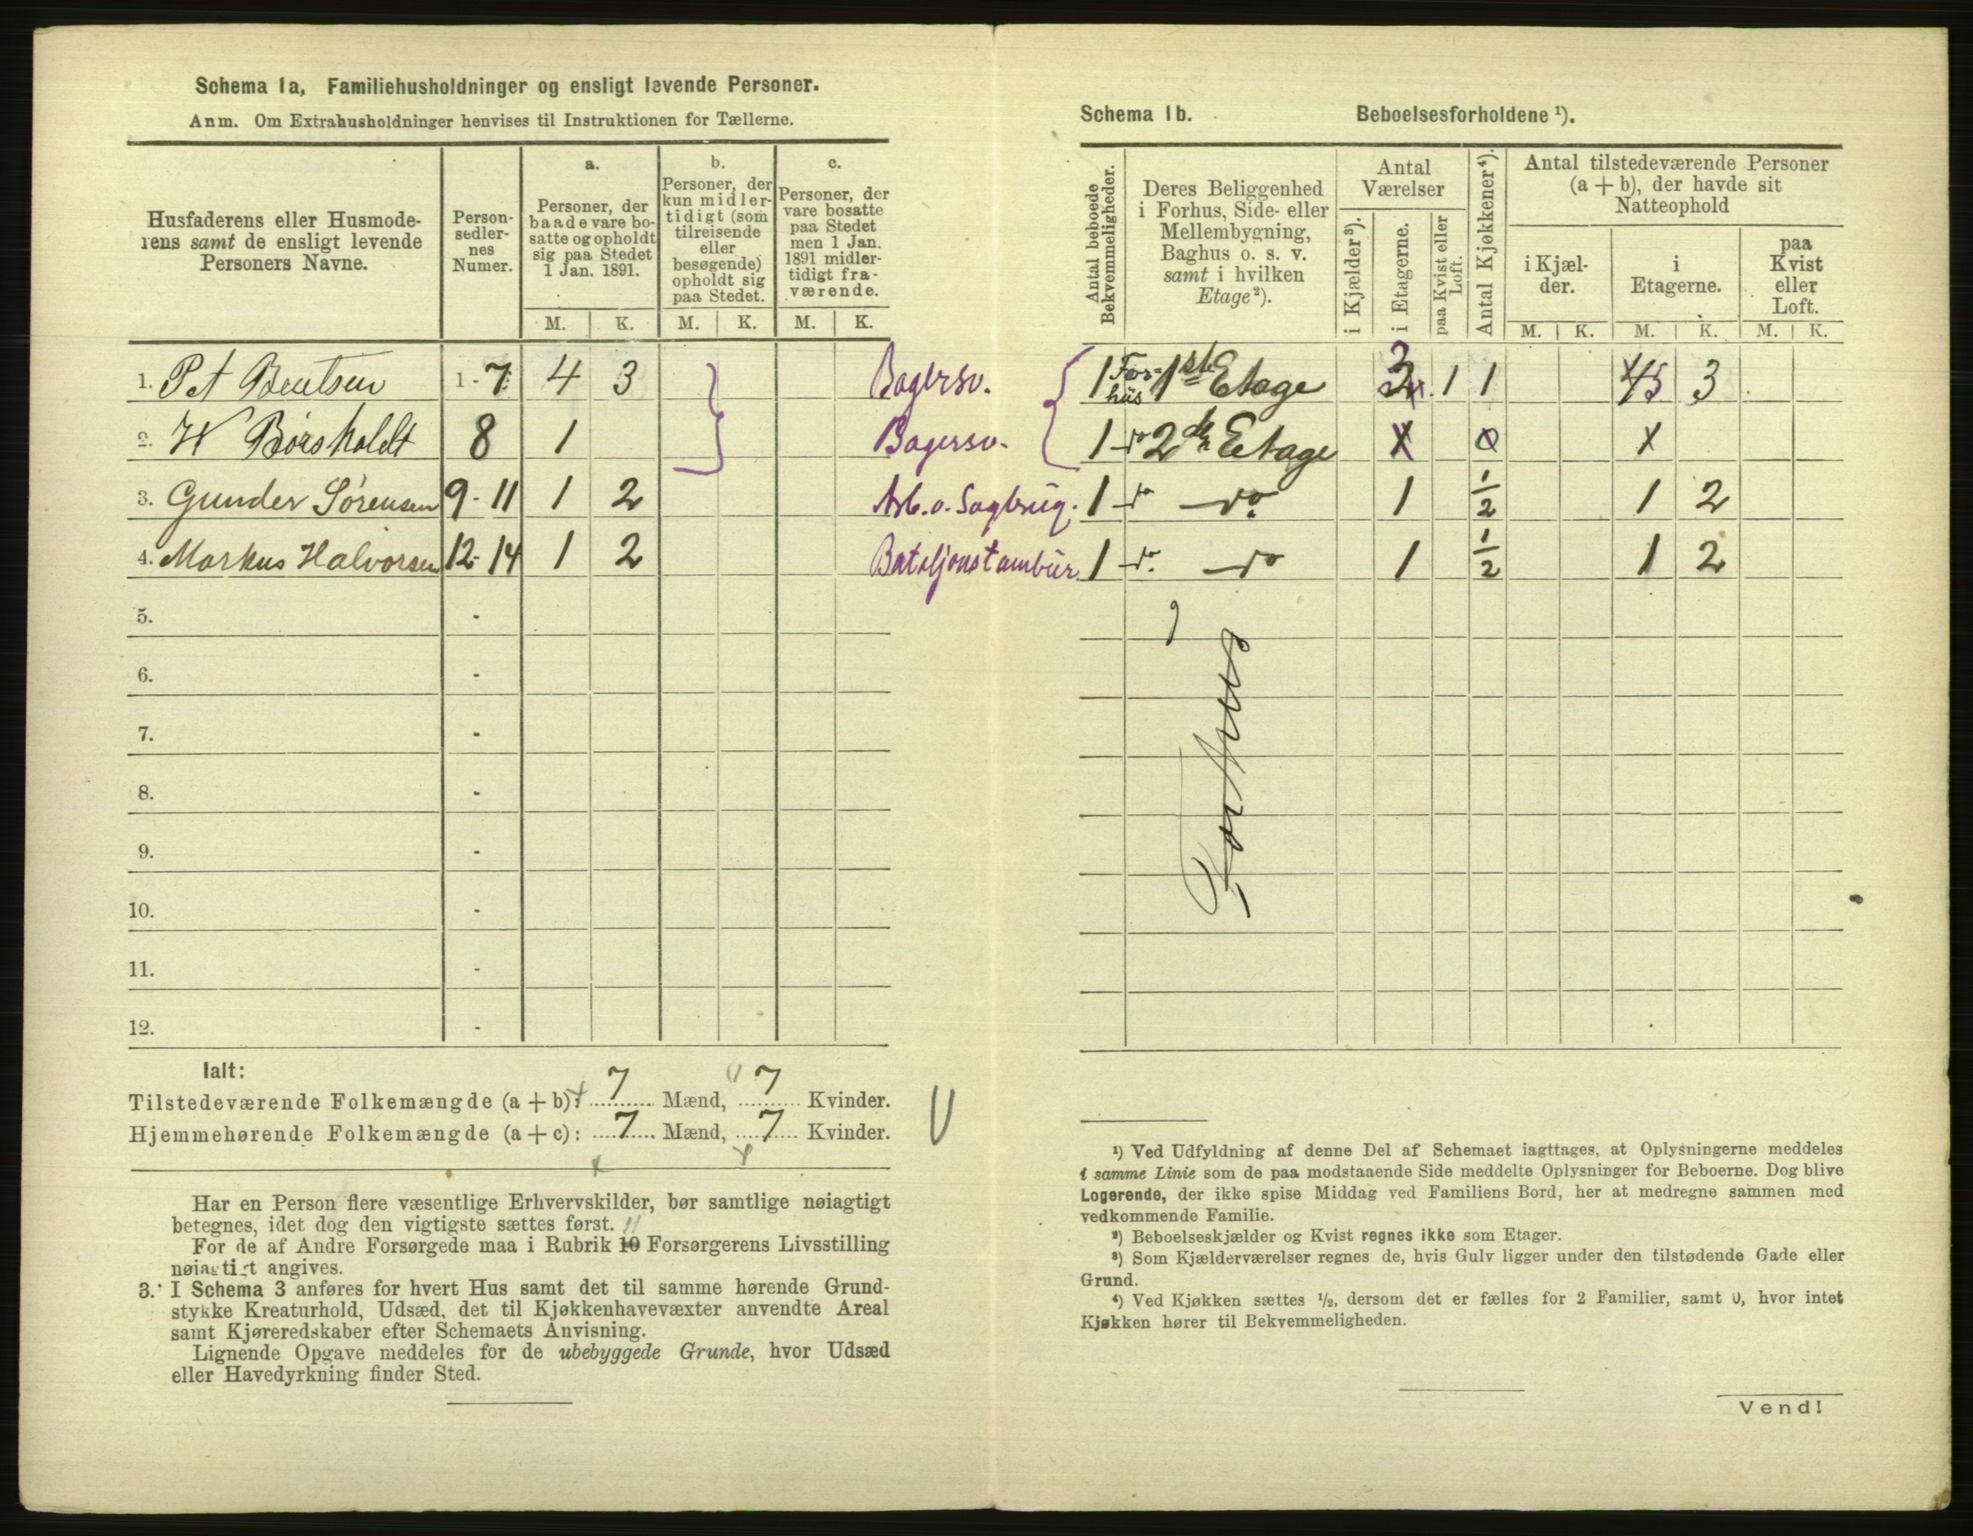 Schema 1a, Familiehusholdninger og ensligt levende Personer.
Anm. Om Extrahusholdninger henvises til Instruktionen for Tællerne.
Husfaderens eller Husmode-
rens samt de ensligt levende
Personers Navne.
Person-
sedler-
nes
Numer.
a.
Personer, der
baade vare bo-
satte og opholdt
sig paa Stedet
1 Jan. 1891.
b.
Personer, der
kun midler-
tidigt (som
tilreisende
eller
besøgende)
opholdt sig
paa Stedet.
c.
Personer, der
vare bosatte
paa Stedet
men 1 Jan.
1891 midler-
tidigt fra-
værende.
M. K. M. K. M. K.
1. P A Bentsen 1 - 7 4 3 Bagersv.
2. H Börsholdt 8 1 Bagersv.
3. Gunder Sørensen 9 - 11 1 2 Arb. o. Sagbrug.
4. Markus Halvorsen 12 - 14 1 2 Bataljonstambur.
5. -
6. -
7. -
8. -
9. -
10. -
11. -
12. -
Ialt:
Tilstedeværende Folkemængde (a + b): 7 Mænd, 7 Kvinder.
Hjemmehørende Folkemængde (a + c): 7 Mænd, 7 Kvinder.
Har en Person flere væsentlige Erhvervskilder, bør samtlige nøiagtigt
betegnes, idet dog den vigtigste sættes først. 11
For de af Andre Forsørgede maa i Rubrik 10 Forsørgerens Livsstilling
nøiagtigt angives.
3. I Schema 3 anføres for hvert Hus samt det til samme hørende Grund-
stykke Kreaturhold, Udsæd, det til Kjøkkenhavevæxter anvendte Areal
samt Kjøreredskaber efter Schemaets Anvisning.
Lignende Opgave meddeles for de ubebyggede Grunde, hvor Udsæd
eller Havedyrkning finder Sted.
Schema 1b. Beboelsesforholdene ¹).
Antal beboede
Bekvemmeligheder.
Deres Beliggenhed
i Forhus, Side- eller
Mellembygning,
Baghus o. s. v.
samt i hvilken
Etage²).
Antal
Værelser
i Kjælder³).
i Etagerne.
paa Kvist eller
Loft.
Antal Kjøkkener⁴).
Antal tilstedeværende Personer
(a + b), der havde sit
Natteophold
i Kjæl-
der.
i
Etagerne.
paa
Kvist
eller
Loft.
M. K. M. K. M. K.
1 For-hus 1ste Etage 3 1 1 5 3
1 do 2den Etage X 0 X
1 do do 1 1/2 1 2
1 do. do 1 1/2 1 2
Forhus
¹) Ved Udfyldning af denne Del af Schemaet iagttages, at Oplysningerne meddeles
i samme Linie som de paa modstaaende Side meddelte Oplysninger for Beboerne. Dog blive
Logerende, der ikke spise Middag ved Familiens Bord, her at medregne sammen med
vedkommende Familie.
²) Beboelseskjælder og Kvist regnes ikke som Etager.
³) Som Kjælderværelser regnes de, hvis Gulv ligger under den tilstødende Gade eller
Grund.
⁴) Ved Kjøkken sættes ½, dersom det er fælles for 2 Familier, samt 0, hvor intet
Kjøkken hører til Bekvemmeligheden.
Vend!